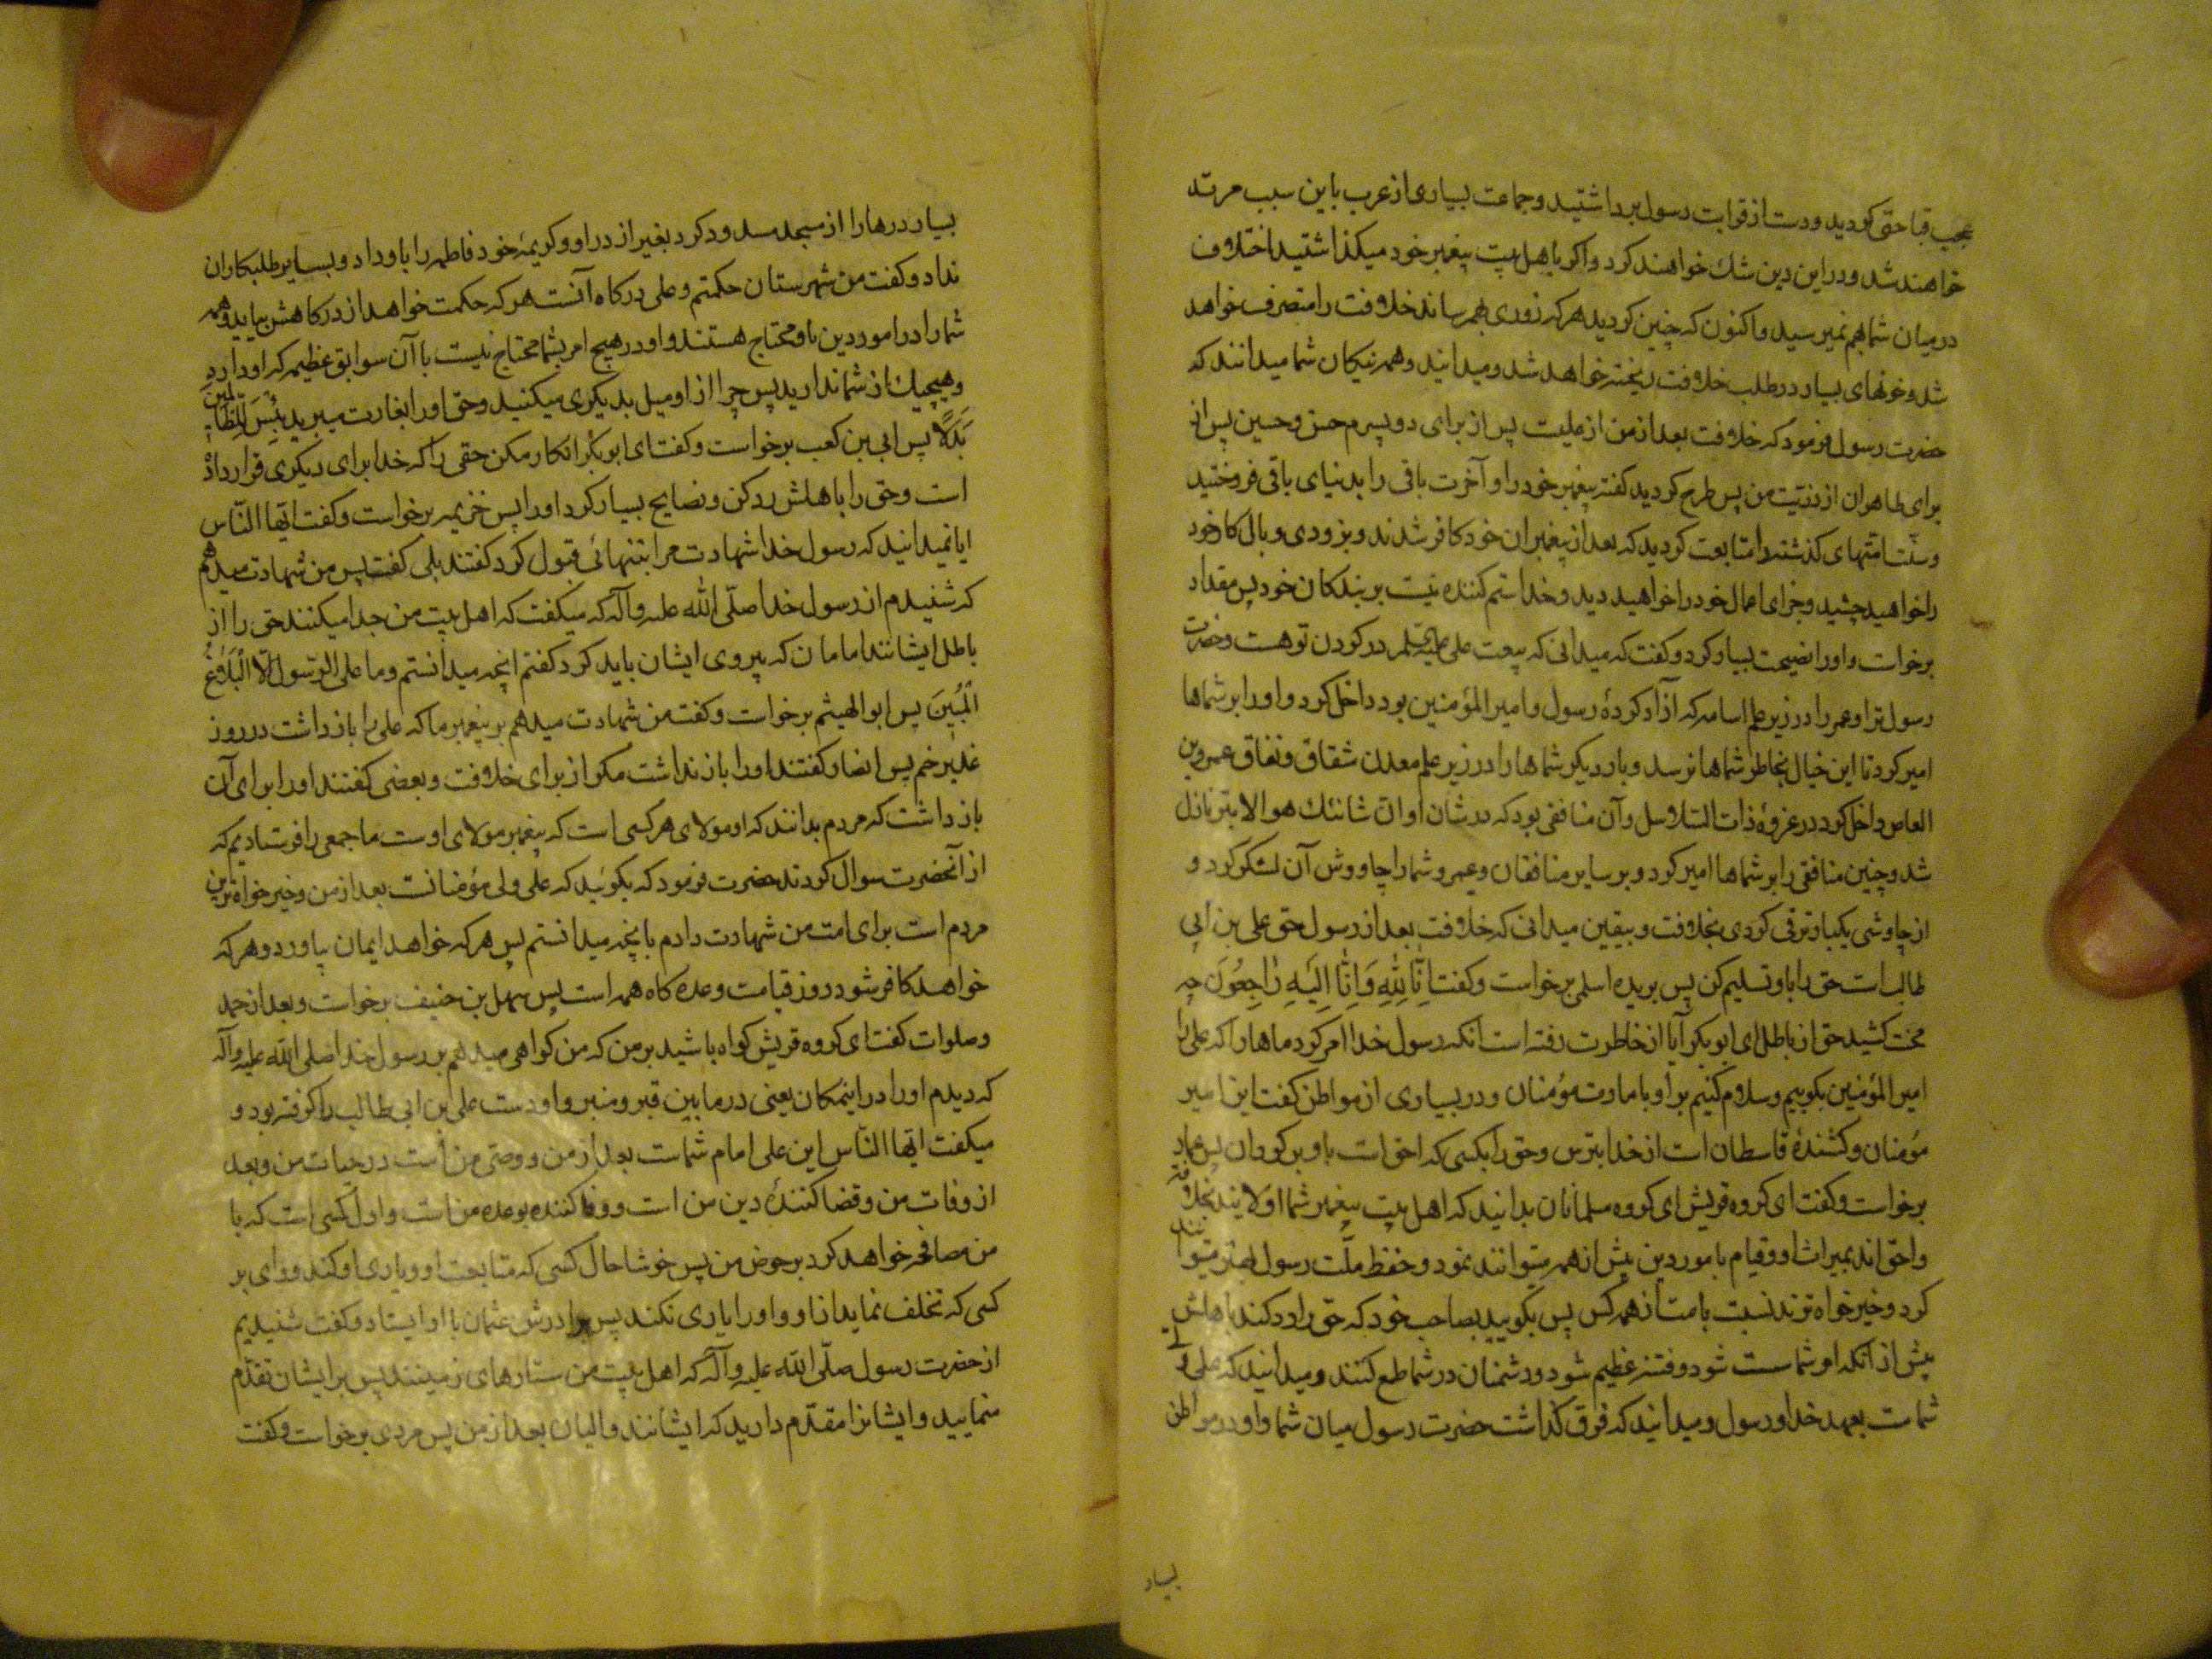 عجب قباحتی کردید و دست از قرابت رسول برداشتید و جماعت بسیاری از عرب باین سبب مرتد
خواهند شد و در این دین شك خواهند کرد و اکر باهل بیت پیغمبر خود میکذاشتید اختلاف
در میان شما بهم نمیرسید و اکنون که چنین کردید هرکه زوری بهم رساند خلافت را متصرف خواهد
شد و خونهای بسیار در طلب خلافت ریخته خواهد شد و میدانید و همه نیکان شما میدانند که
حضرت رسول فرمود که خلافت بعد از من از علیست پس از برای دو پسرم حسن و حسین پس از
برای طاهران از ذریت من پس طرح کردید کفته پیغمبر خود را و آخرت باقی را بدنیای باقی فروختید
و سنت امتهای کذشته را متابعت کردید که بعد از پیغمبران خود کافر شدند و بزودی وبال کار خود
را خواهید چشید و جزای اعمال خود را خواهید دید و خدا ستم کننده نیست بر بندکان خود پس مقداد
برخواست و او را نصیحت بسیار کرد و کفت که میدانی که بیعت علی در کردن تو هست و حضرت
رسول ترا و عمر را در زیر علم اسامه که آزاد کردهٔ رسول و امیر المؤمنین بود داخل کرد و او را بر شماها
امیر کرد تا این خیال بخاطر شماها نرسد و بار دیکر شماها را در زیر علم معدن شقاق و نفاق عمرو بن
العاص داخل کرد در غزوهٔ ذات السلاسل و آن منافقی بود که در شان او ان شانئك هو الابتر نازل
شد و چنین منافقی را بر شماها امیر کرد و بر سایر منافقان و عمرو شما را چاووش آن لشکر کرد و
از چاوشی یکبار ترقی کردی بخلافت و بیقین میدانی که خلافت بعد از رسول حق علی بن ابی
طالب است حق را باو تسلیم کن پس بریده اسلمی برخواست و کفت اِنّا لِلّٰهِ وَاِنّا اِلَیهِ رٰاجِعُونَ چه
محنت کشید حق از باطل ای ابو بکر آیا از خاطرت رفته است انکه رسول خدا امر کرد ماها را که علی را
امیر المؤمنین بکوییم و سلام کنیم بر او بامارت مؤمنان و در بسیاری از مواطن کفت این امیر
مؤمنان و کشندهٔ قاسطان است از خدا بترس و حق را بکسی که احق است باو بر کردان پس عمار
برخواست و کفت ای کروه قریش ای کروه مسلمانان بدانید که اهل بیت پیغمبر شما اولایند بخلافت
و احق اند بمیراث او و قیام بامور دین بیش از همه میتوانند نمود و حفظ ملت رسول بهتر میتوانند
کرد و خیر خواه ترند نسبت بامت از همه کس پس بکویید بصاحب خود که حق را رد کند باهلش
پیش از آنکه امر شما سست شود و فتنه عظیم شود و دشمنان در شما طمع کنند و میدانید که علی ولی
شماست بعهد خدا و رسول و میدانید که فرق کذاشت حضرت رسول میان شما و او در مواطن
بسیار
بسیار درها را از مسجد مسدود کرد بغیر از در او و کریمهٔ خود فاطمه را باو داد و بسایر طلبکاران
نداد و کفت من شهرستان حکمتم و علی درکاه آنست هر که حکمت خواهد از درکاهش بیاید و همه
شما را در امور دین باو محتاج هستند و او در هیچ امر بشما محتاج نیست با آن سوابق عظیمه که او دارد
و هیچیك از شما ندارید پس چرا از او میل بدیکری میکنید و حق او را بغارت میبرید بِئسَ لِلظّالِمینَ
بَدَلًا پس ابی بن کعب برخواست و کفت ای ابو بکر انکار مکن حقی را که خدا برای دیکری قرار داده
است و حق را باهلش رد کن و نصایح بسیار کرد او را پس خزیمه برخواست و کفت ایّها النّاس
ایا نمیدانید که رسول خدا شهادت مرا بتنهائی قبول کرد کفتند بلی کفت پس من شهادت میدهم
که شنیدم از رسول خدا صلّی الله علیه و آله که میکفت که اهل بیت من جدا میکنند حق را از
باطل ایشانند امامان که پیروی ایشان باید کرد کفتم انچه میدانستم و ما علی الرّسول الّا البَلاغُ
المُبینَ پس ابو الهیثم برخواست و کفت من شهادت میدهم بر پیغمبر ما که علی را باز داشت در روز
غدیر خم پس انصار کفتند او را باز نداشت مکر از برای خلافت و بعضی کفتند او را برای آن
باز داشت که مردم بدانند که او مولای هر کسی است که پیغمبر مولای اوست ما جمعی را فرستادیم که
از آنحضرت سوال کردند حضرت فرمود که بکوئید که علی ولی مؤمنانست بعد از من و خیر خواه ترین
مردم است برای امت من شهادت دادم بانچه میدانستم پس هر که خواهد ایمان بیاورد و هر که
خواهد کافر شود روز قیامت وعده کاه همه است پس سهل بن حنیف برخواست و بعد از حمد
و صلوات کفت ای کروه قریش کواه باشید بر من که من کواهی میدهم بر رسول خدا صلی الله علیه و آله
که دیدم او را در اینمکان یعنی در مابین قبر و منبر و او دست علی ابن ابی طالب را کرفته بود و
میکفت ایّها النّاس این علی امام شماست بعد از من و وصی من است در حیات من و بعد
از وفات من و قضا کنندهٔ دین من است و وفا کننده بوعده من است و اول کسی است که با
من مصافحه خواهد کرد بر حوض من پس خوشا حال کسی که متابعت او و یاری او کند و وای بر
کسی که تخلف نماید از او و او را یاری نکند پس برادرش عثمان با او ایستاد و کفت شنیدیم
از حضرت رسول صلّی الله علیه و آله که اهل بیت من ستارهای زمینند پس بر ایشان تقدّم
منمایید و ایشانرا مقدّم دارید که ایشانند والیان بعد از من پس مردی برخواست و کفت